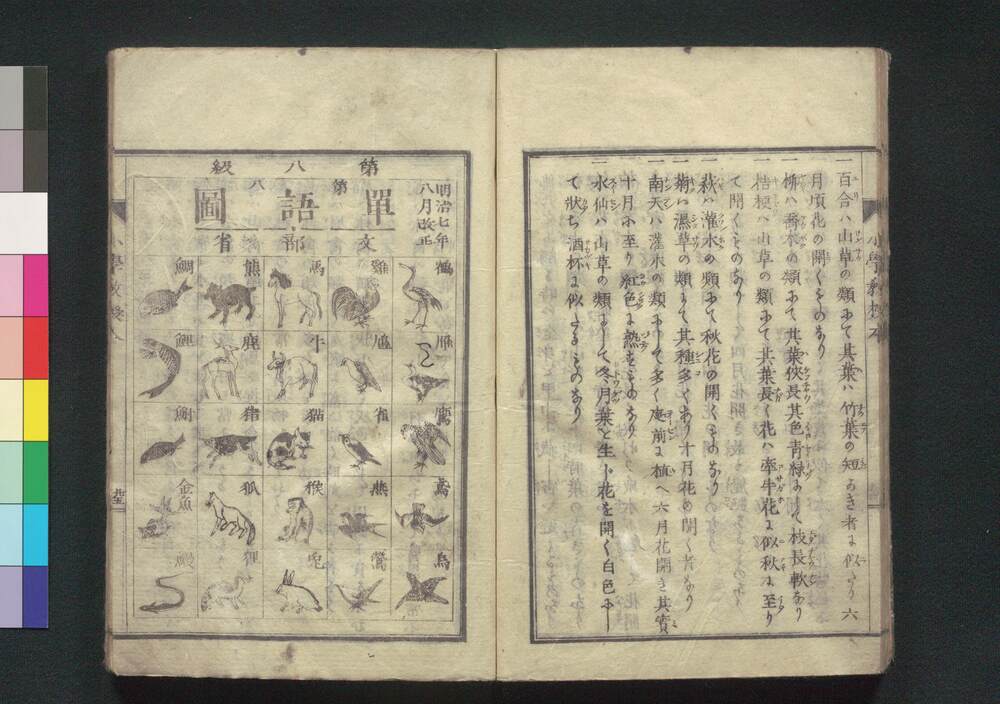 一 百合ハ山草の類にて其葉ハ竹葉の短かき者に似たり六
月頃花の開くものなり
一 柳ハ喬木の類にて其葉狹長其色青緑にして枝長軟なり
一 桔梗ハ山草の類にて其葉長く花ハ牽牛花に似秋に至り
て開くものなり
一 萩ハ灌木の類にて秋花の開くものなり
一 菊ハ濕草の類にて其種多くあり十月花の開く者なり
一 南天ハ灌木の類にして多く庭前に植へ六月花開き其實
十月に至り紅色に熟するものなり
一 水仙ハ山草の類にして冬月葉を生し花を開く白色にし
て状ち酒杯に似たるものなり
第八級
第八
單語圖
明治七年
八月改正
文部省
鶴 雁 鷹 鳶 烏
雞 鳬 雀 燕 鶯
馬 牛 猫 猴 兎
熊 鹿 猪 狐 狸
鯛 鯉 鮒 金魚 鰻